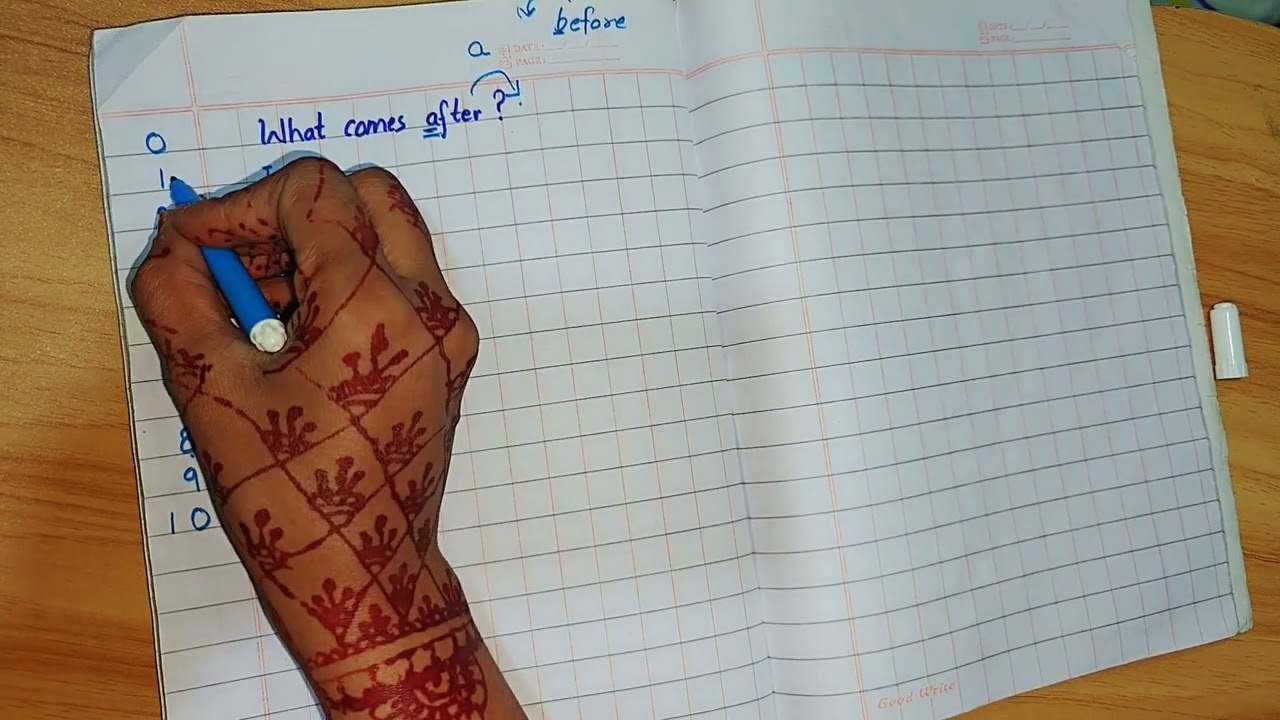 before
a
DATE:
PAGE:
DATE:
PAGE:
What comes after ?
0
1
8
9
10
Good Write